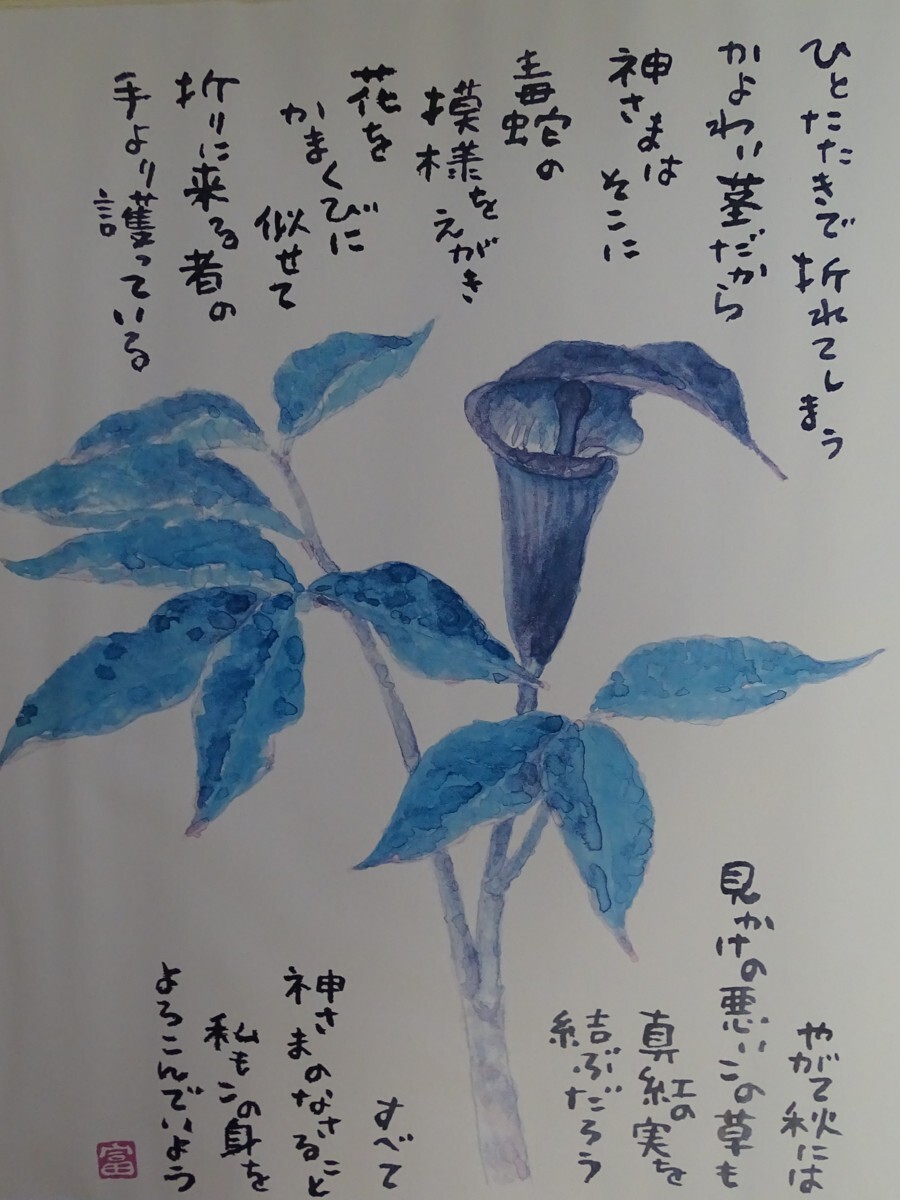 ひとたたきで 折れてしまう
かよわい茎だから
神さまは
そこに
毒蛇の
模様を
えがき
花を
かまくびに
似せて
折りに来る者の
手より護っている
やがて秋には
見かけの悪いこの草も
真紅の実を
結ぶだろう
すべて
神さまのなさること
私もこの身を
よろこんでいよう
富